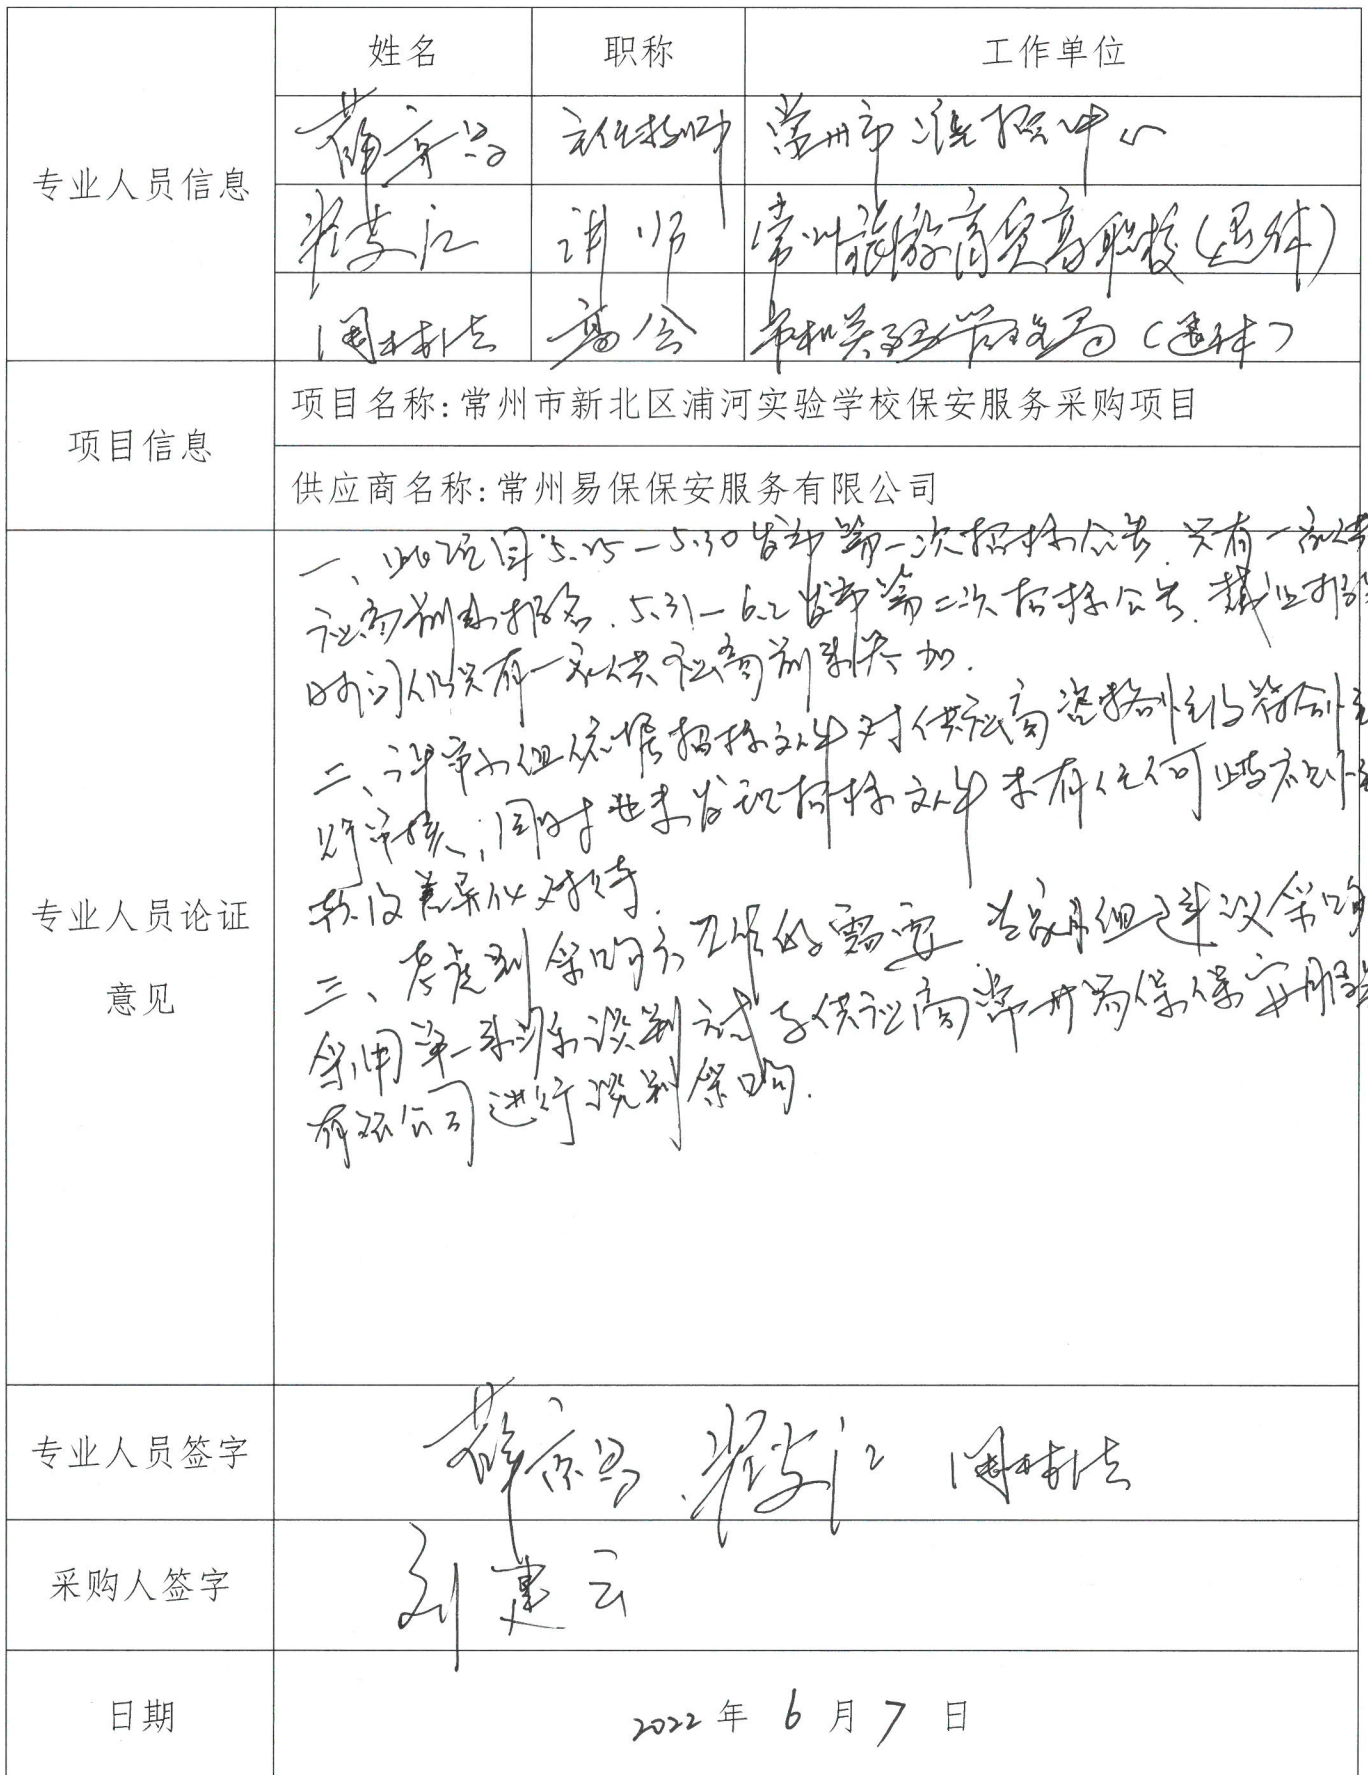 姓名 职称 工作单位
专业人员信息
薛 主任技师 常州市 中心
江 讲师 常州旅游商贸高职校(退休)
周林法 高会 市机关 管理局(退休)
项目信息
项目名称:常州市新北区浦河实验学校保安服务采购项目
供应商名称:常州易保保安服务有限公司
专业人员论证
意见
一、此项目5.25—5.30发布第一次招标公告.只有一家供
应商前来报名.5.31—6.2发布第二次招标公告.截止报名
时间仍只有一家供应商前来参加.
二、评审小组依据招标文件对供应商资格性及符合性
审核,同时也未发现招标文件未有任何歧视性
款及差异化对待.
三、考虑到采购方工作的需要.专家组建议采购
采用单一来源谈判方式与供应商常州易保保安服务
有限公司进行谈判采购.
专业人员签字
薛 江 周林法
采购人签字
刘建云
日期
2022年6月7日